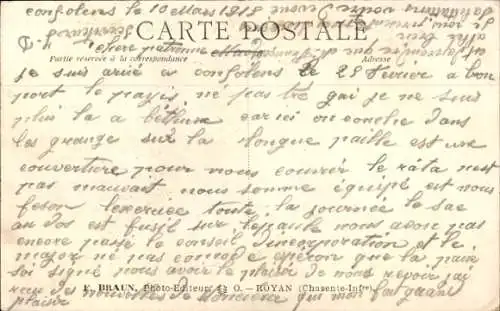 confolens le 10 Mars 1918
CARTE POSTALE
chere patronne
Partie réservée à la correspondance
Adresse
je suis arivé a confolens le 28 Fevrier a bon
port le payis né pas tré gai je ne suis
plus la a béthune car ici on couche dans
les grange sur la longue paille est une
couverture pour nous couvrir le rata nest
pas mauvait nous somme équipé est nous
feson lexercice toute la journée le sac
au dos est fusil sur lespaule nous avon pas
encore passé le conseil dincorporation et le
major ne pas comode esperon que la paix
soi signé nous avoir le plaisir de nous revoir jai
reçu des nouvelles de Monsieur qui mon fait grand
plaisir
F. BRAUN, Photo-Editeur O. — ROYAN (Charente-Infre).